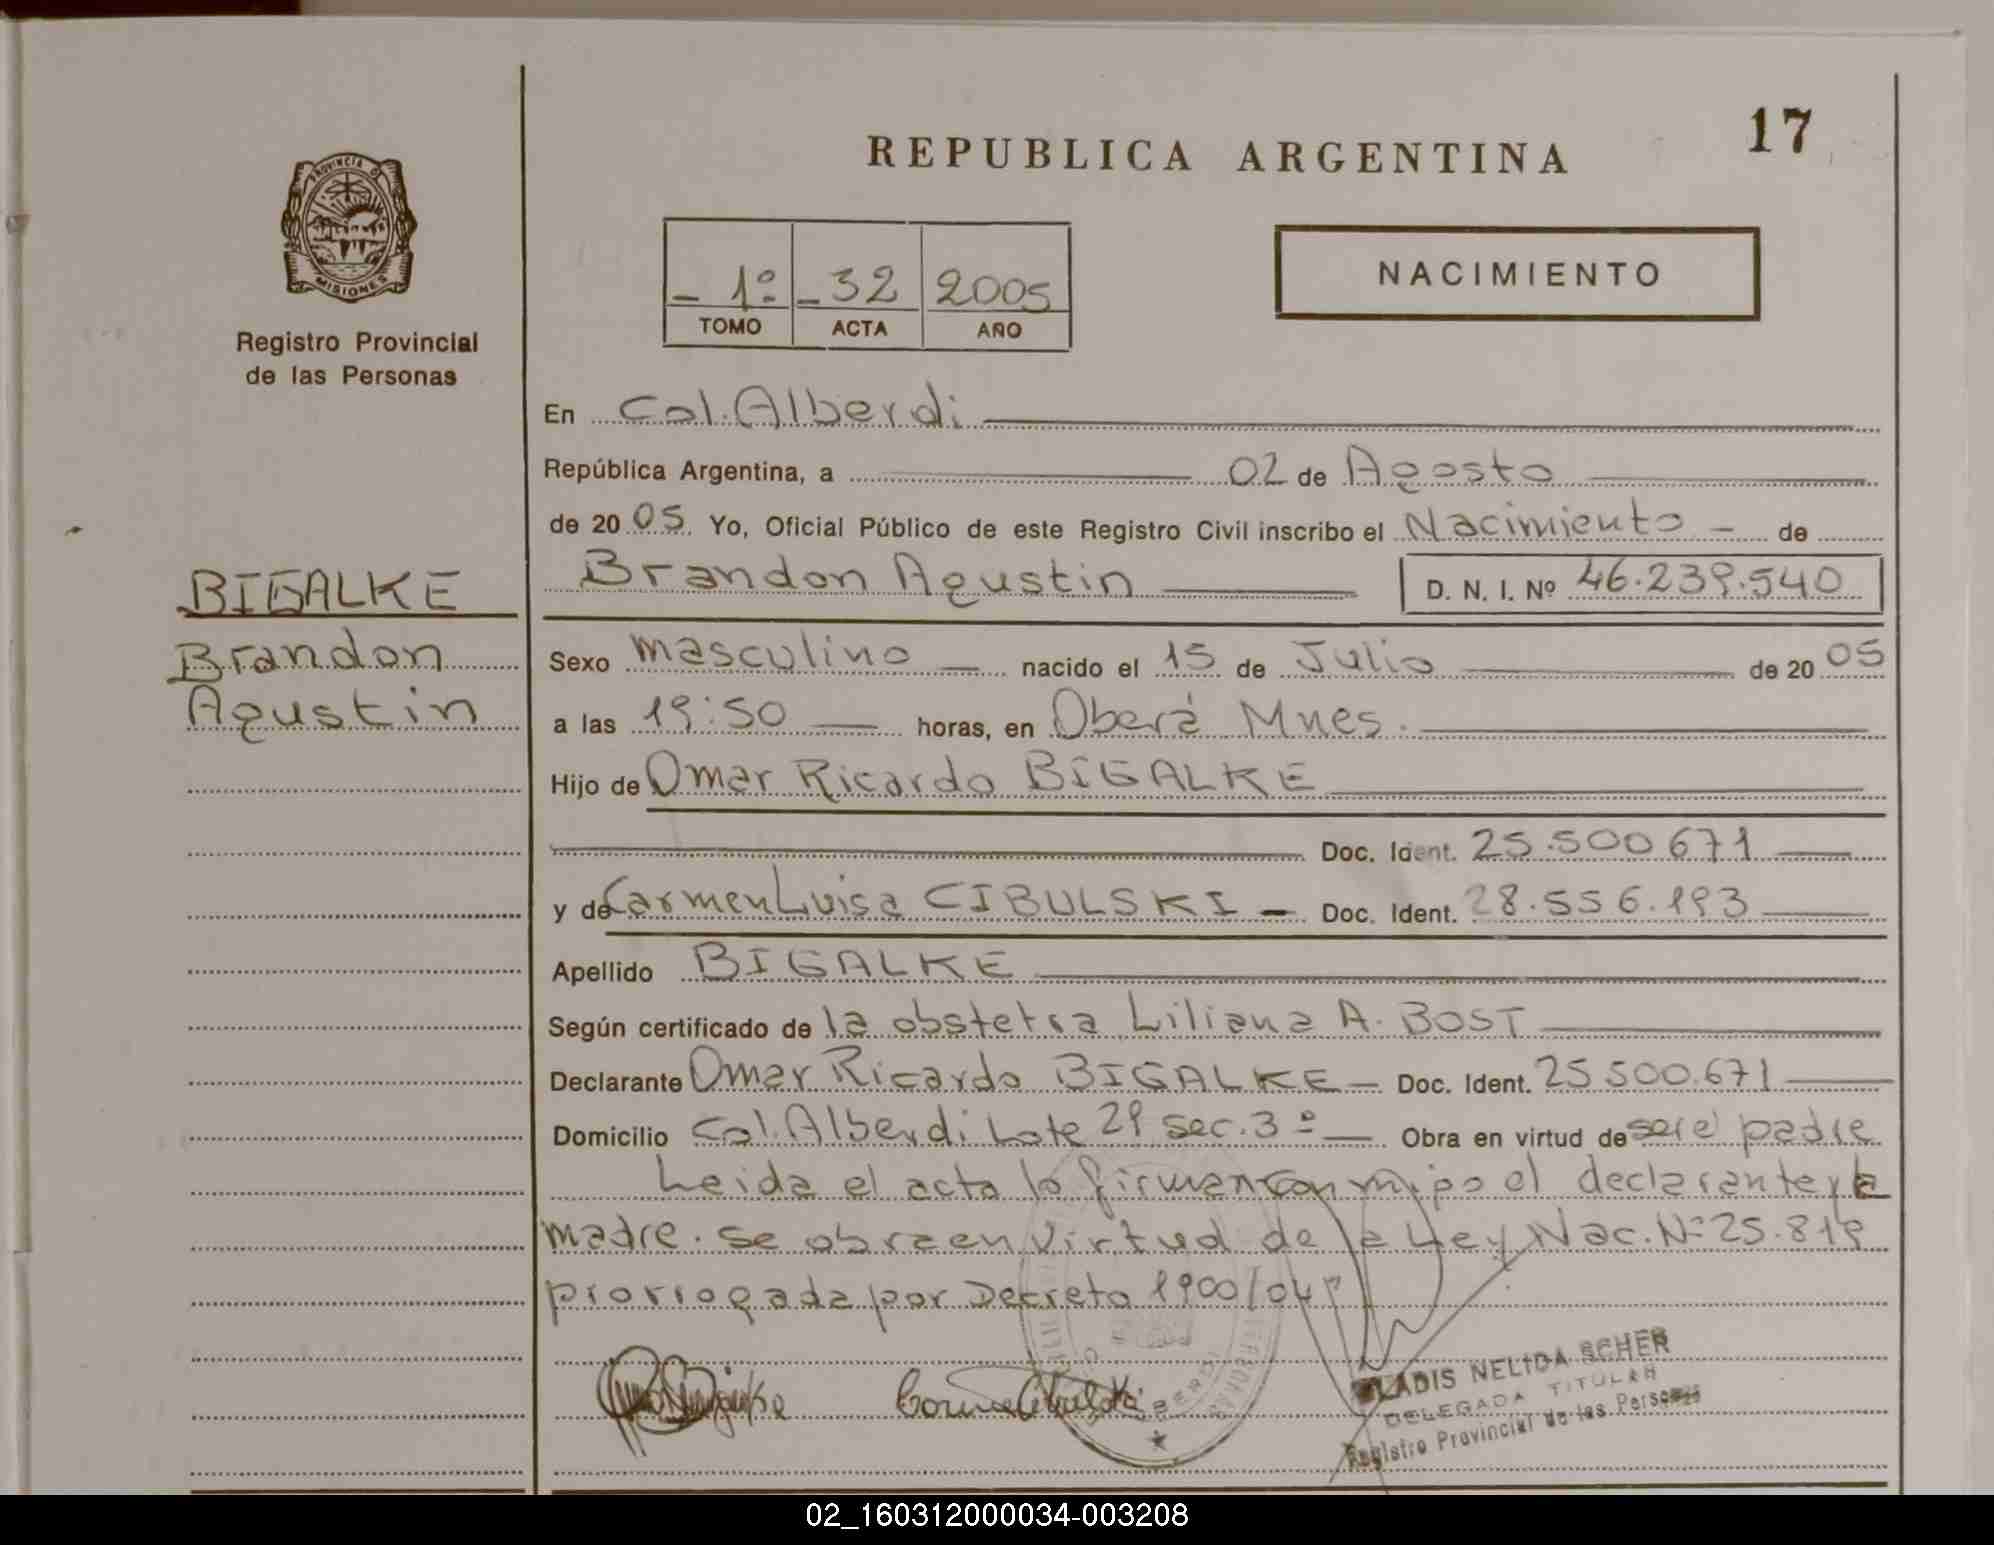 17
REPUBLICA ARGENTINA
PROVINCIA DE
MISIONES
Registro Provincial
de las Personas
- 1º - 32 2005
TOMO ACTA AÑO
NACIMIENTO
En Col. Alberdi
República Argentina, a 02 de Agosto
de 2005. Yo, Oficial Público de este Registro Civil inscribo el Nacimiento - de
Brandon Agustin D. N. I. Nº 46.239.540
BIGALKE
Brandon
Agustin
Sexo masculino nacido el 15 de Julio de 2005
a las 19:50 horas, en Oberá Mnes.
Hijo de Omar Ricardo BIGALKE
Doc. Ident. 25.500671
y de Carmen Luisa CIBULSKI - Doc. Ident. 28.556.193
Apellido BIGALKE
Según certificado de la obstetra Liliana A. BOST
Declarante Omar Ricardo BIGALKE - Doc. Ident. 25 500.671
Domicilio Col. Alberdi Lote 29 sec. 3º - Obra en virtud de ser el padre
Leida el acta lo firman con migo el declarante y la
madre. Se obra en virtud de la Ley Nac. Nº 25.819
prorrogada por Decreto 1900/04"
GLADIS NELIDA SCHER
DELEGADA TITULAR
Registro Provincial de las Personas
02_160312000034-003208